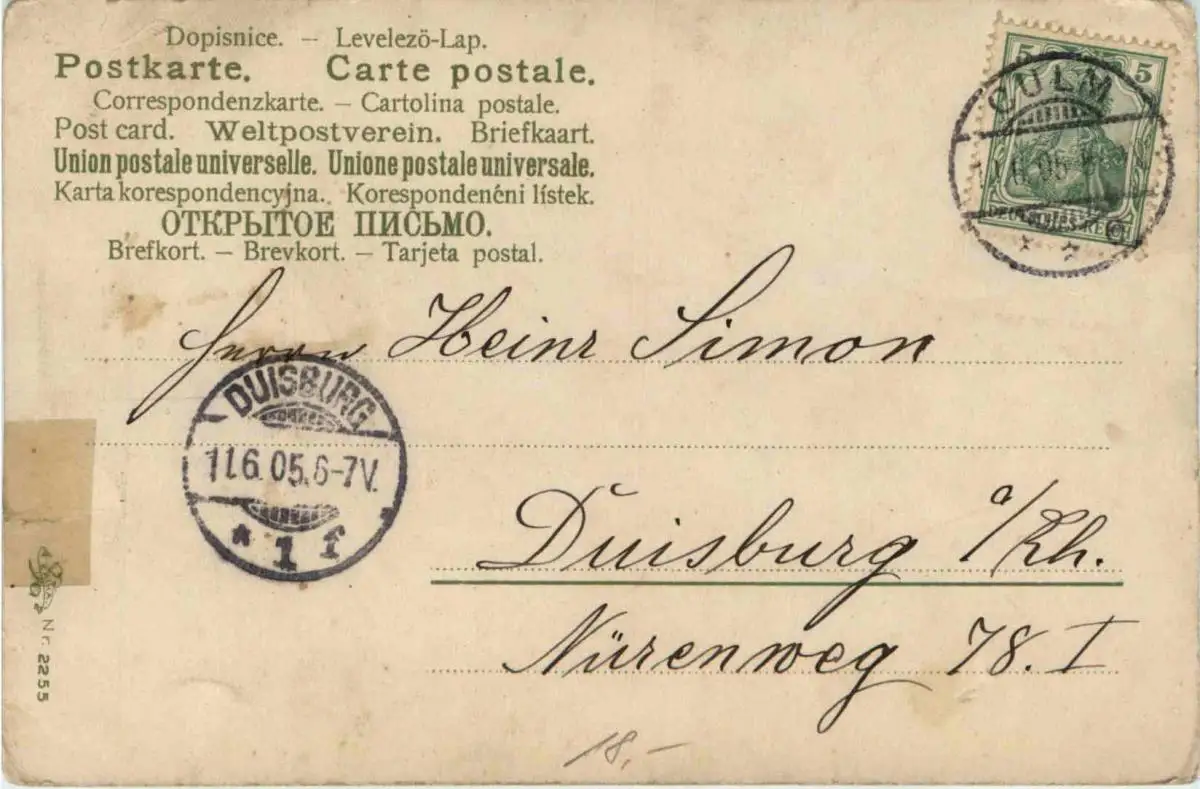 Dopisnice. — Levelezö-Lap.
Postkarte. Carte postale.
Correspondenzkarte. — Cartolina postale.
Post card. Weltpostverein. Briefkaart.
Union postale universelle. Unione postale universale.
Karta korespondencyjna. Korespondenčni lístek.
ОТКРЫТОЕ ПИСЬМО.
Brefkort. — Brevkort. — Tarjeta postal.
5 5
CULM
6.05
DEUTSCHES REICH
Herrn Heinr Simon
DUISBURG
11.6.05.6-7V.
* 1 f
Duisburg a/Rh.
Nürenweg 78. I
Nr. 2255
18,-